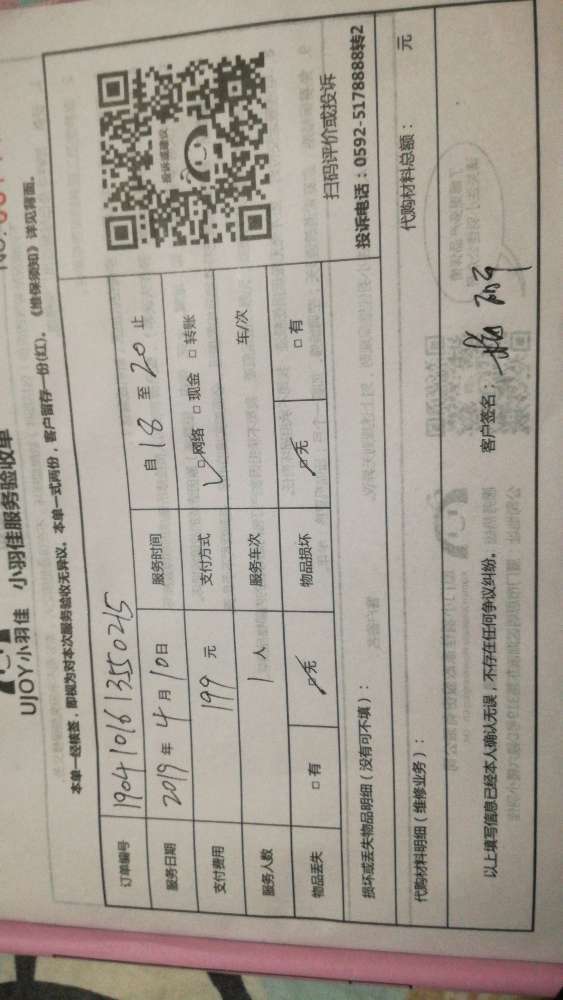 UJOY小羽佳 小羽佳服务验收单
本单一经核签，即视为对本次服务验收无异议。本单一式两份，客户留存一份(红)。《维保须知》详见背面。
订单编号 1904101613550215
服务日期 2019年4月10日 服务时间 自18至20止
支付费用 199元 支付方式 ☑网络 □现金 □转账
服务人数 1人 服务车次 车/次
物品丢失 □有 ☑无 物品损坏 ☑无 □有
投诉或建议
扫码评价或投诉
投诉电话：0592-5178888转2
损坏或丢失物品明细（没有可不填）：
代购材料明细（维修业务）： 代购材料总额： 元
以上填写信息已经本人确认无误，不存在任何争议纠纷。 客户签名：